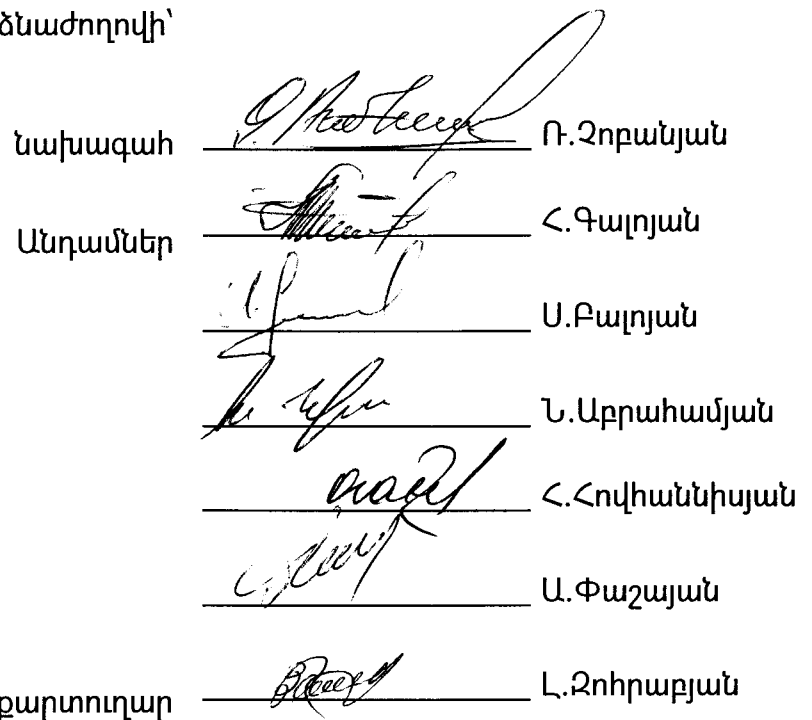 ձնաժողովի՝
նախագահ Ռ.Չոբանյան
Անդամներ Հ.Գալոյան
Ս.Բալոյան
Ն.Աբրահամյան
Հ.Հովհաննիսյան
Ա.Փաշայան
քարտուղար Լ.Զոհրաբյան